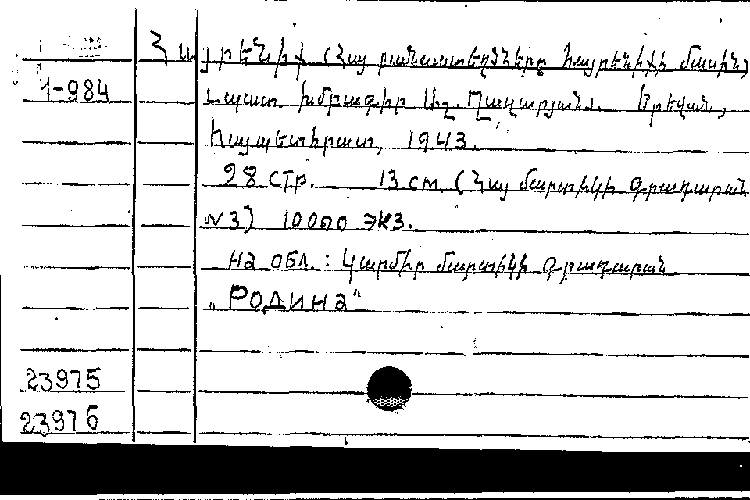 Հայրենիք (Հայ բանաստեղծները հայրենիքի մասին)
1-984
Պատ. խմբագիր Աշ. Ղազարյան. Երևան,
Հայպետհրատ, 1943.
98 стр. 13 см. (Հայ մարտիկի գրադարան
N3) 10000 экз.
На обл.: Կարմիր մարտիկի գրադարան
„Родина“
23975
23976